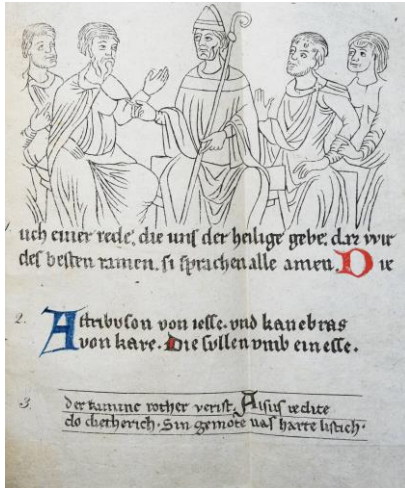 1.
uch einer rede, die unſ der heilige gebe, daz wir
deſ beſten ramen. ſi ſprachen alle amen. Die
2.
Aſtribvſon von ieſſe. vnd kanebras
von kare. Die ſvllen vmb ein eſſe.
3.
der kuninc rother veriſt. Alſus redite
do dietherich. Sin gemote was harte liſtich.